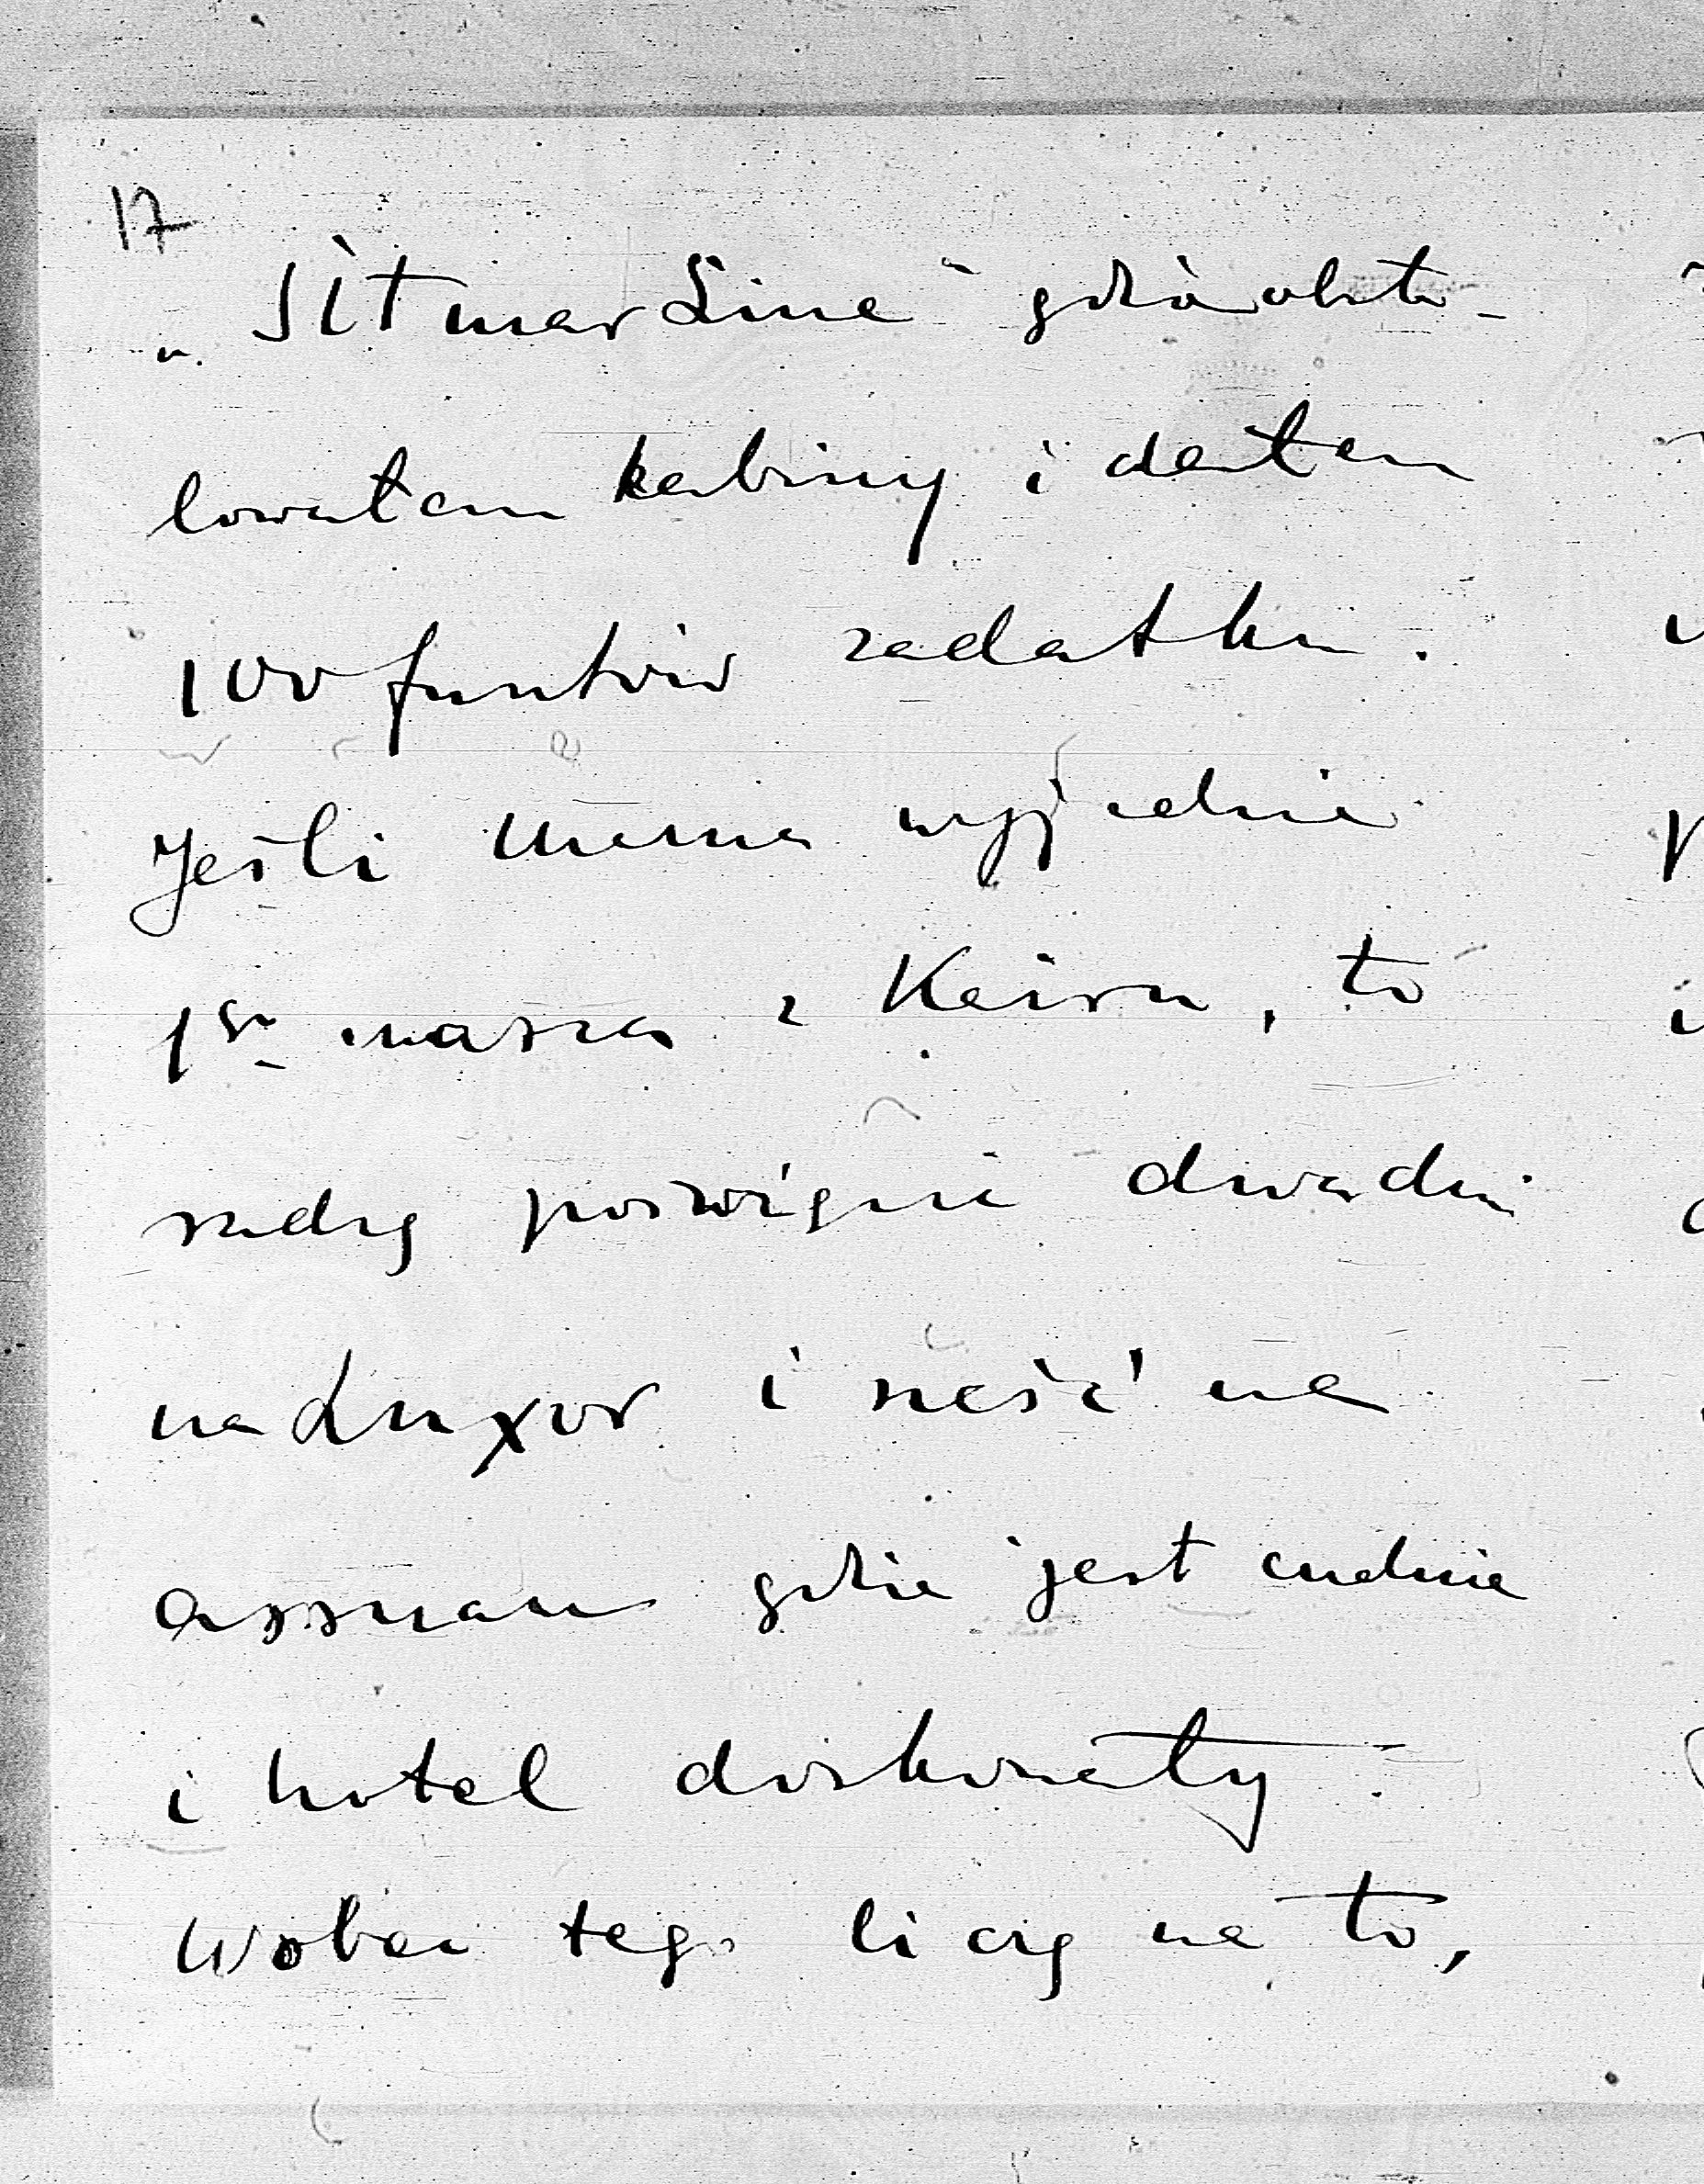 17
„Sitmar Line” gdzie obsta-
lowałam kabiny i dałam
100 funtów zadatku.
Jeśli Mama wyjedzie
1go marca z Kairu, to
radzę poświęcić dwa dni
na Luxor i sześć na
Assuan gdzie jest cudnie
i hotel doskonały.
Wobec tego liczę na to,